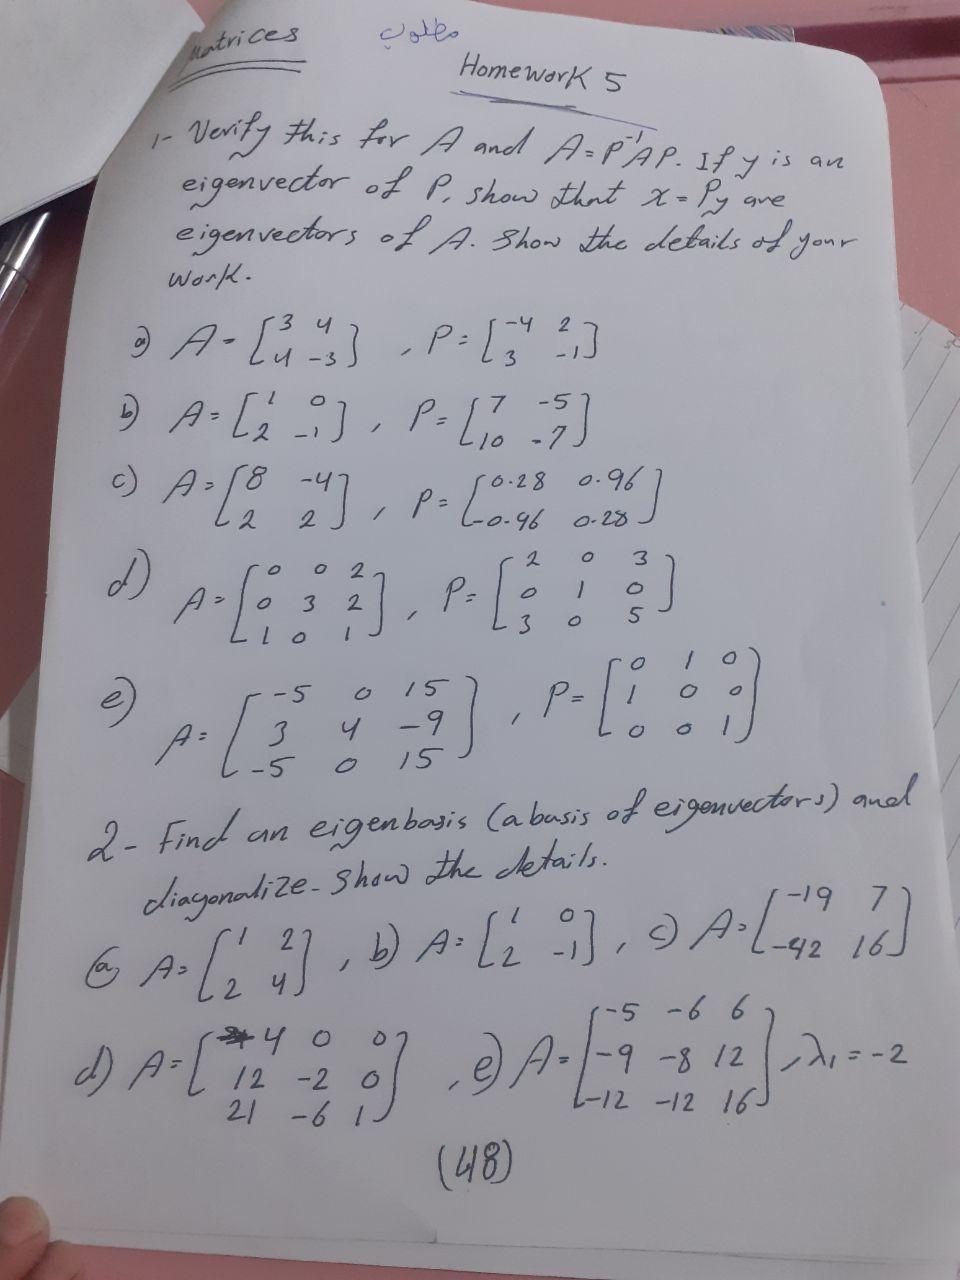 Matrices مطلوب
Homework 5
1- Verify this for A and A = P⁻¹AP. If y is an
eigenvector of P, show that x = Py are
eigenvectors of A. Show the details of your
work.
a) A = [3 4; 4 -3], P = [-4 2; 3 -1]
b) A = [1 0; 2 -1], P = [7 -5; 10 -7]
c) A = [8 -4; 2 2], P = [0.28 0.96; -0.96 0.28]
d) A = [0 0 2; 0 3 2; 1 0 1], P = [2 0 3; 0 1 0; 3 0 5]
e) A = [-5 0 15; 3 4 -9; -5 0 15], P = [0 1 0; 1 0 0; 0 0 1]
2- Find an eigenbasis (a basis of eigenvectors) and
diagonalize. Show the details.
a) A = [1 2; 2 4], b) A = [1 0; 2 -1], c) A = [-19 7; -42 16]
d) A = [4 0 0; 12 -2 0; 21 -6 1], e) A = [-5 -6 6; -9 -8 12; -12 -12 16], λ₁ = -2
(48)